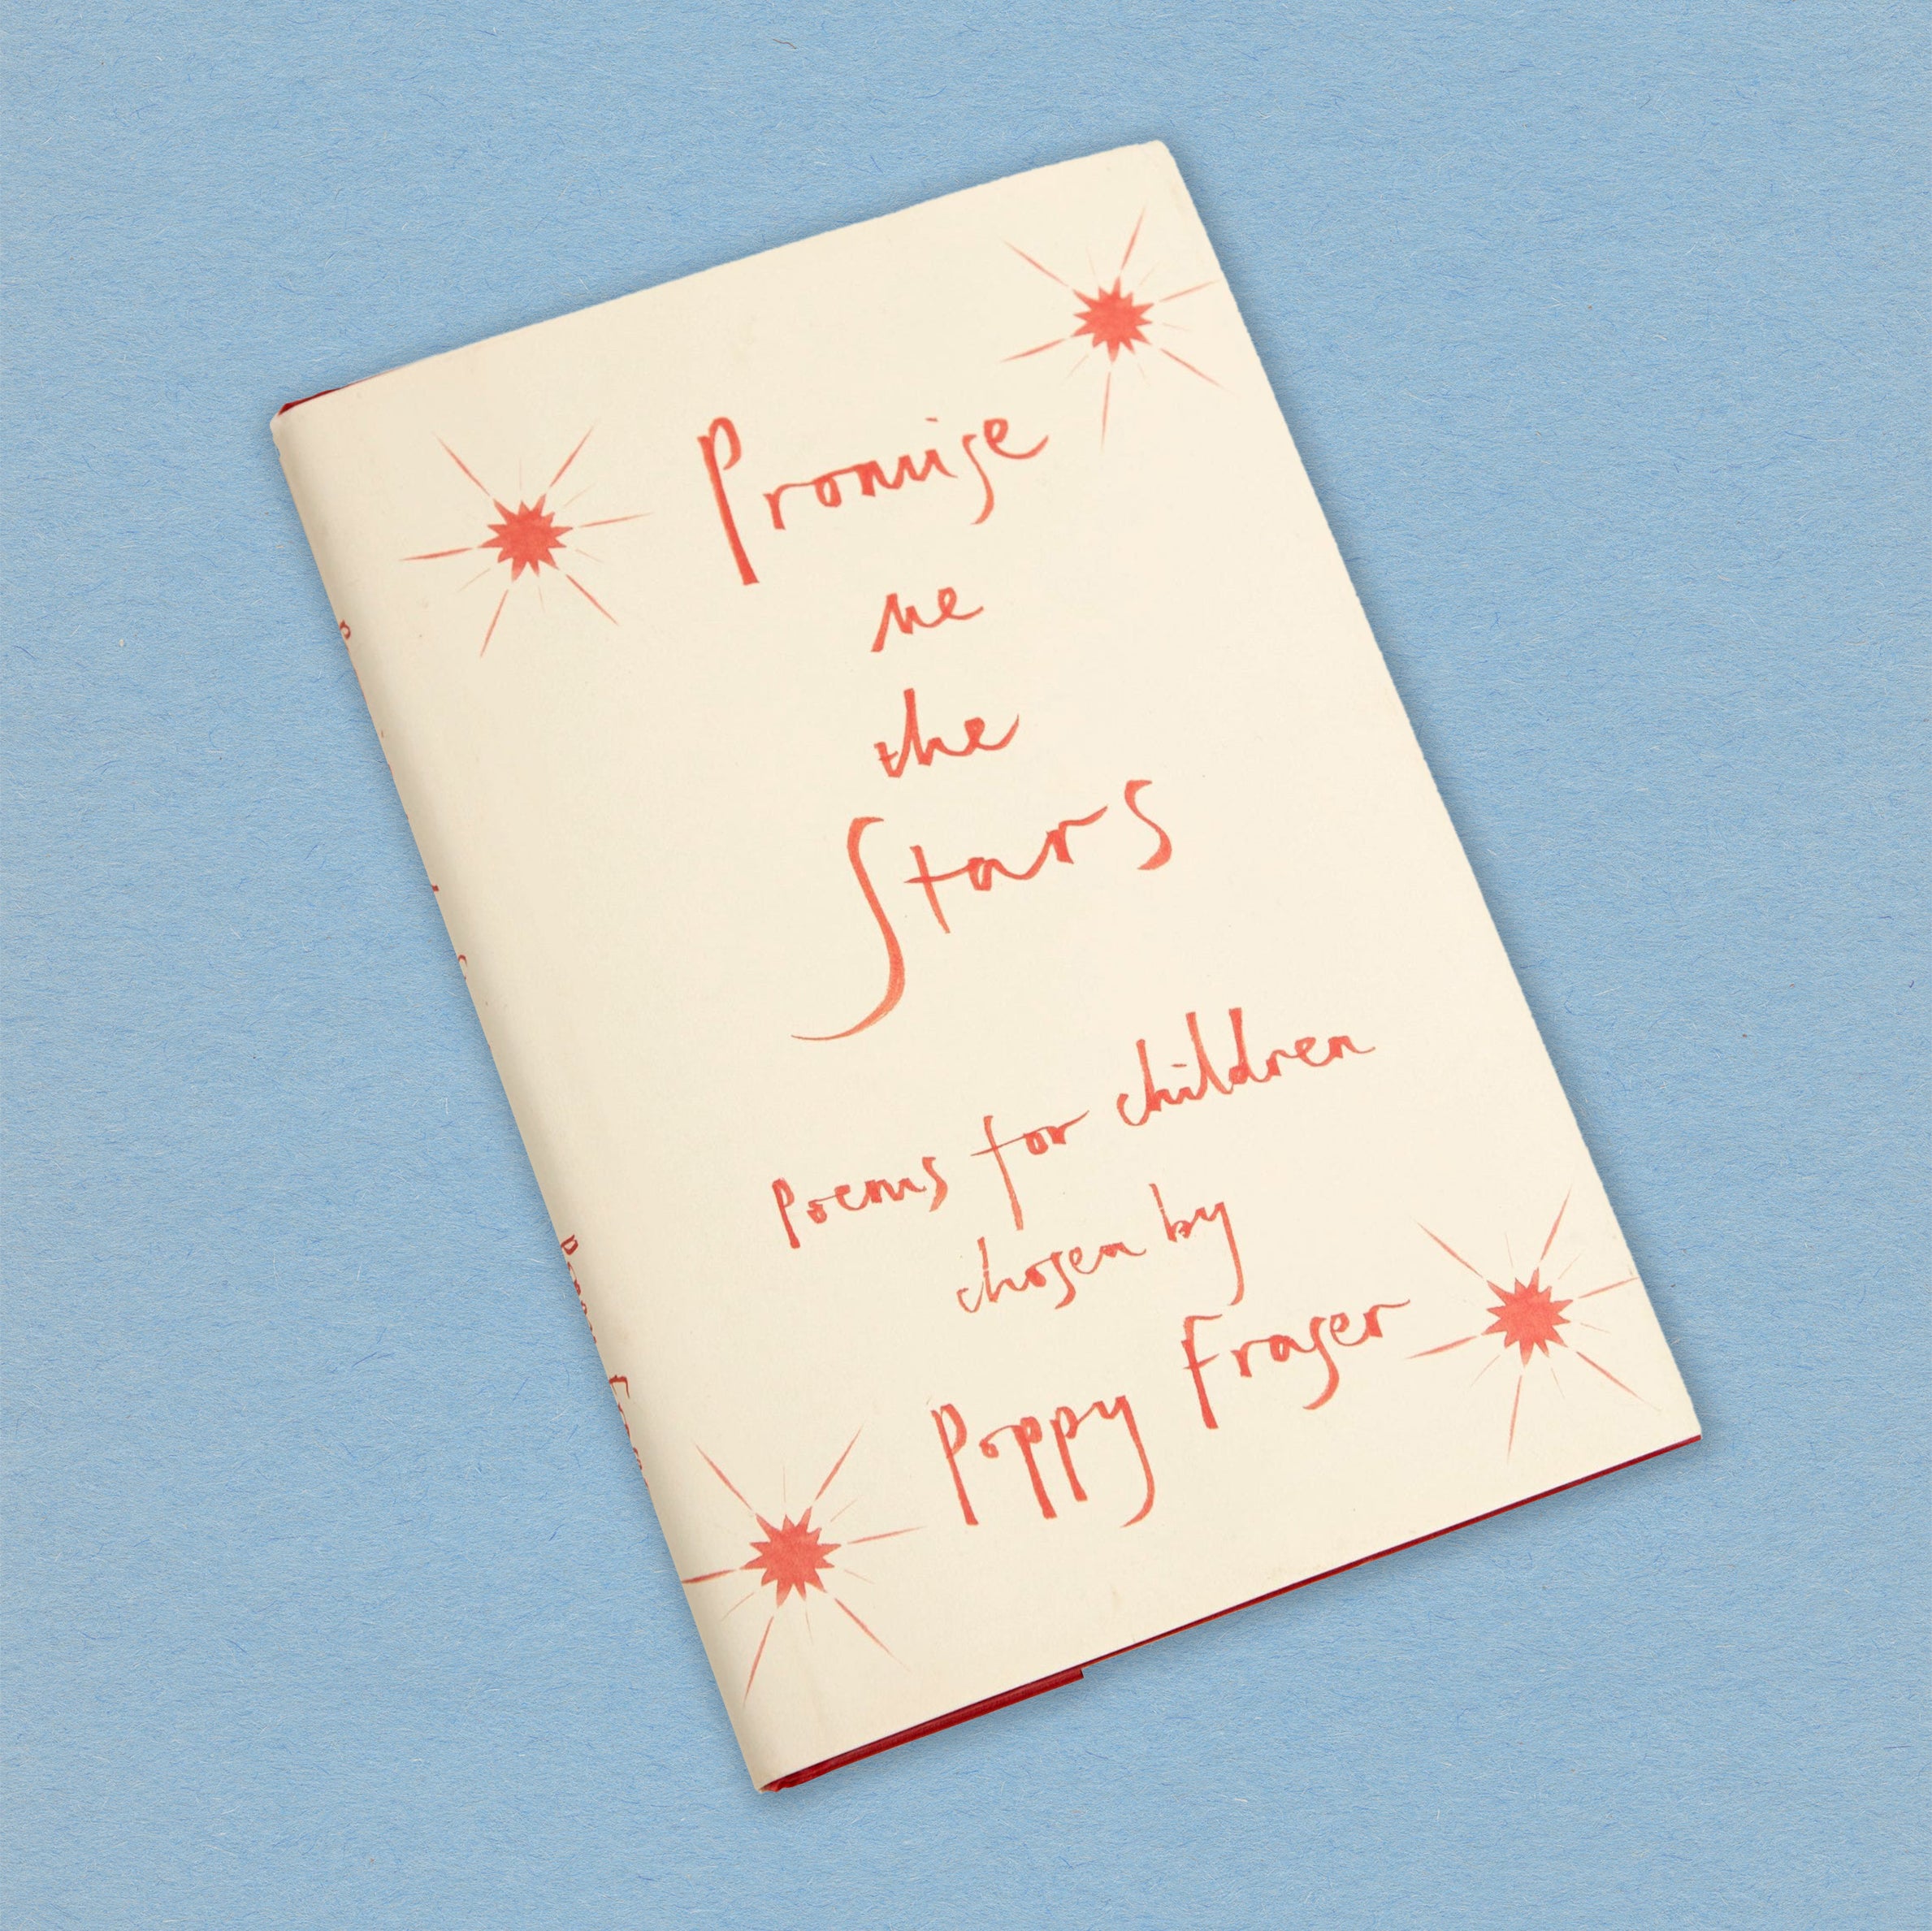 Promise
me
the
Stars
poems for children
chosen by
Poppy Fraser
Poppy Fraser